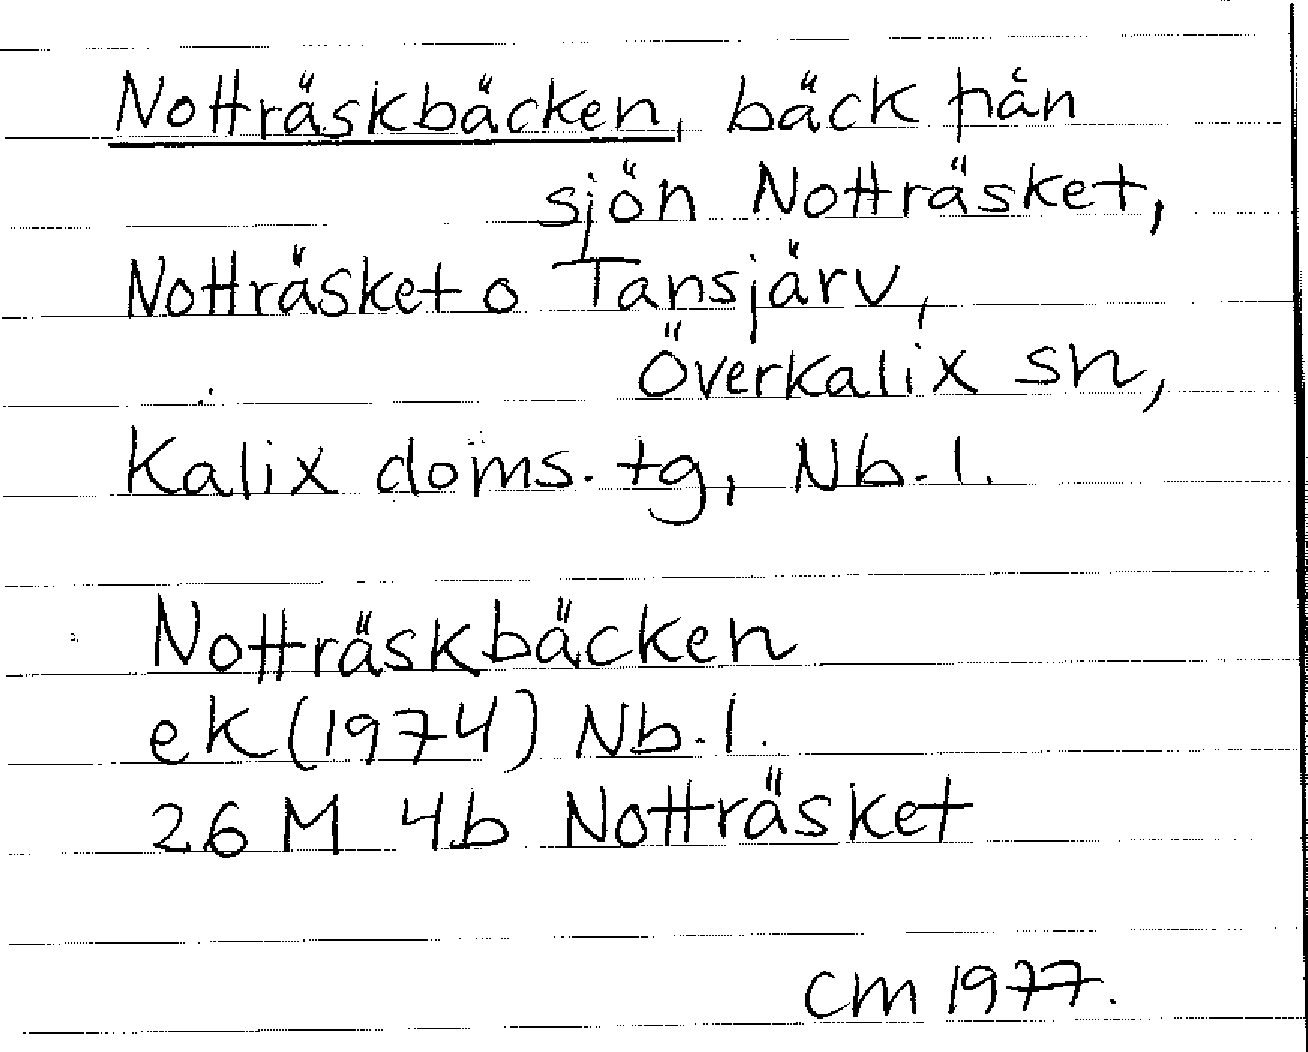 Notträskbäcken, bäck från
sjön Notträsket,
Notträsket o Tansjärv,
Överkalix sn,
Kalix doms. tg, Nb. l.
Notträskbäcken
ek (1974) Nb. l.
26 M 4b Notträsket
CM 1977.